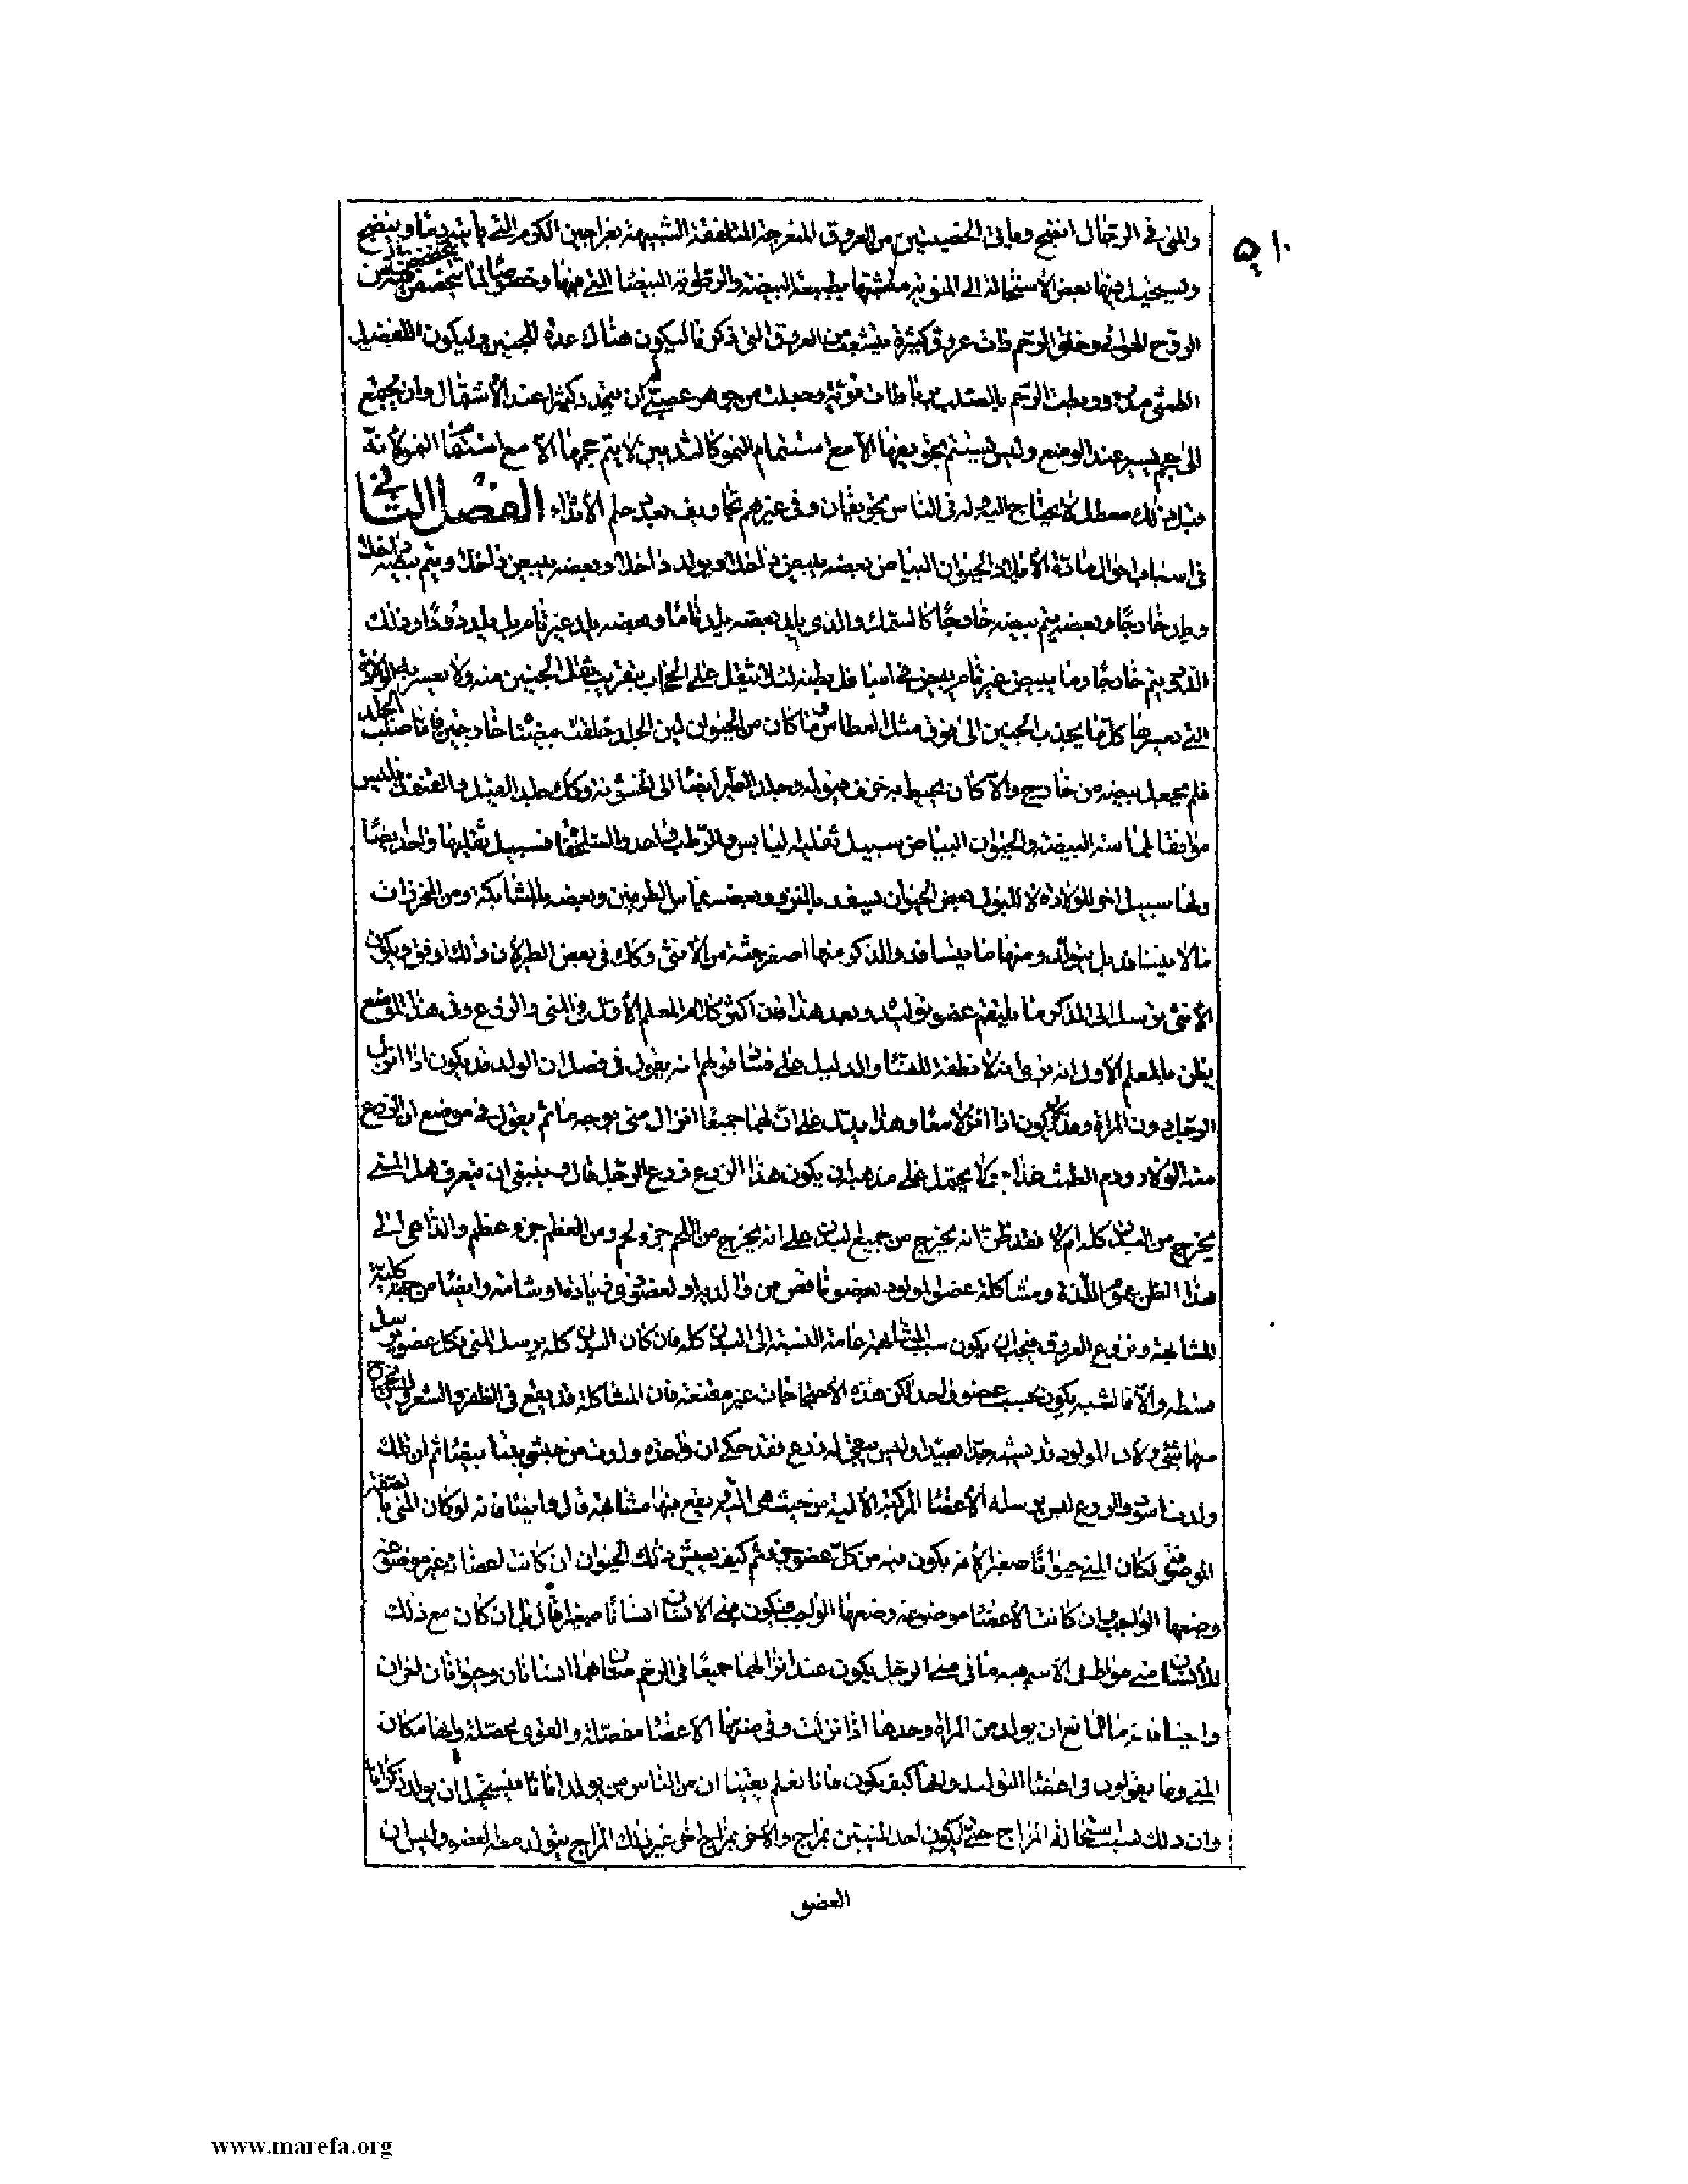 والمنى فى الرجال انضج وما فى الخصيتين من العروق المنعرجة المتلففة الشبيهة بعراجين الكروم التى يأتيه وينضج
ويستحيل فيها بعض الاستحالة الى المنوية بطبيعة البيضة والرطوبة البيضا التى فيها وخصوصا لما يتخضخض من
الروح الهوائى وخلق الرحم ذات عروق كثيرة متشعبة من العروق التى ذكرنا ليكون هناك عدة للجنين وليكون للفضل
الطمثى وربطت الرحم بالصلب برباطات قوية وجعلت من جوهر عصبى ان يتمدد كثيرا عند الاشتمال وان يجتمع
الى حجم يسير عند الوضع وليس يستتم تجويفها الا مع استتمام النمو كالثديين لا يتم حجمها الا مع استتمام النمو لانه
قبل ذلك معطل لا يحتاج اليه وله فى الناس تجويفان وفى غيرهم تجاويف بعدد حلم الاثداء الفصل الثانى
فى اسباب احوال مادة الحيوان البياض بعضه يبيض داخلا ويولد داخلا وبعضه يبيض داخلا ويتم بيضه داخلا
ويلد خارجا وبعضه يتم بيضه خارجا كالسمك والذى يلد بعضه يلد تاما وبعضه يلد غير تام بل يلد دودا وذلك
الدود يتم خارجا وما يبيض غير تام يبيض فى اسافل بطنه لئلا يثقل على الحجاب بتقريب ثقل الجنين منه ولا يعسر به الولادة
التى يعسرها كل ما يجذب الجنين الى فوق مثل العطاس وما كان من الحيوان لين الجلد خلقت بيضتا خارجتين واما صلب الجلد
فلم يجعل بيضه من خارج والا كان يحيط به خزف وجلد الطير ايضا الى الخشونة وكك جلد الفيل والقنفذ فليس
موافقا لماسة البيضة والحيوان البياض سبيل ثفليه اليابس والرطب واحد والسلحفا فسبيل ثفليها واحد ايضا
ولها سبيل اخر للولادة لا للبول بعض الحيوان يسفد بالنزو وبعضه بتماس الظهرين وبعضه بالمشابكة ومن المحززات
ما لا يتسافد بل يتولد ومنها ما يتسافد والذكر منها اصغر جثة من الانثى وكك فى بعض الطير لان ذلك اوفق ويكون
الانثى ترسل الى الذكر ما يلتقم عضو توليده وبعد هذا فان اكثر كلام المعلم الاول فى المنى والزرع وفى هذا الموضع
يظن بالمعلم الاول انه يرى انه لا نطفة للنسا والدليل على فساد قولهم انه يقول فى فصل ان الولد قد يكون اذا انزل
الرجل دون المراة وقد يكون اذا انزلا معا وهذا يدل على ان لهما جميعا انزال منى بوجه ما ثم يقول فى موضع ان الزرع
منه الاولاد ودم الطمث غذاء ولا يحتمل على مذهبه ان يكون هذا الزرع زرع الرجل قال وينبغى ان يتعرف هل المنى
يخرج من البدن كله ام لا فقد ظن انه يخرج من جميع البدن على انه يخرج من اللحم جزء لحم ومن العظم جزء عظم والداعى الى
هذا الظن عموم اللذة ومشاكلة عضو المولود بعضو ناقص من والديه او لعضو ذى زيادة او شامة وايضا من جهة كلية
المشابهة ونزوع العروق فيجب ان يكون سبب المشابهة عامة النسبة الى البدن كله فان كان البدن كله يرسل المنى فكل عضو يرسل
قسطه والا فالشبه يكون بحسب عضو واحد لكن هذه الاحتجاجات غير مقنعة فان المشاكلة قد يقع فى الظفر والشعر وليس يخرج
منها شىء ولان المولود قد يشبه جدا بعيدا وليس يبقى له زرع فقد حكى ان واحدة ولدت من حبشى بنتا بيضا ثم ان تلك
ولدت اسود والزرع ليس يرسله الاعضا المركبة الالية من حيث هى الية ويقع فيها مشابهة قال وايضا فانه لو كان المنى
لكان المنى حيوانا صغيرا لانه يكون فيه من كل عضو جزء ثم كيف يعيش ذلك الحيوان ان كانت اعضائه غير موضوعة
وضعها الواجب وان كانت الاعضا موضوعة وضعها الواجب فيكون منى الانسان انسانا صغيرا قال فان كان مع ذلك
للنساء منى مواطى الاسم لما فى منى الرجل يكون عند انزالهما جميعا فى الرحم انسانان وحيوانان اخران
وايضا فانه ما المانع ان يولد من المراة وحدها اذا نزلت وفى منيها الاعضا مفصلة والقوى محصلة ولها مكان
المنى وما يقولون فى اعضا التوليد وانها كيف يكون فانا نعلم يقينا ان من الناس من يولد اناثا فيستحيل ان يولد ذكرانا
وان ذلك بسبب استحالة المزاج حتى يكون احد المنيين بمزاج والاخر بمزاج اخر غير ذلك المزاج يتولد وليس ان
العضو
www.marefa.org